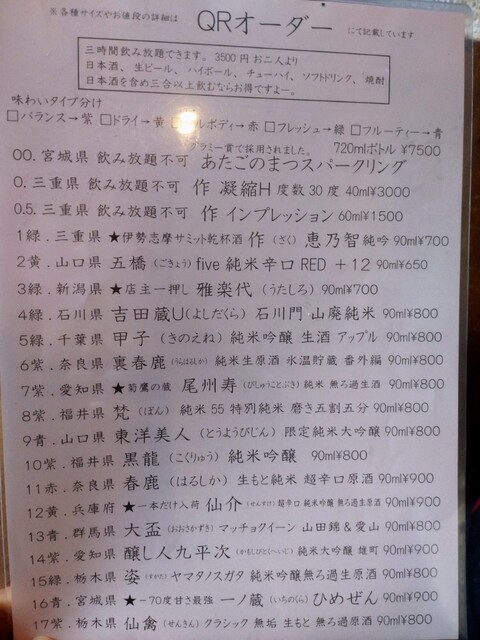 ※各種サイズやお値段の詳細は QRオーダー にて記載しています
三時間飲み放題できます。3500円お二人より
日本酒、生ビール、ハイボール、チューハイ、ソフトドリンク、焼酎
日本酒を含め三合以上飲むならお得ですよー。
味わいタイプ分け
□バランス→紫 □ドライ→黄 ルボディ→赤 □フレッシュ→緑 □フルーティー→青
グラミー賞で採用されました。 720mlボトル ¥7500
00. 宮城県 飲み放題不可 あたごのまつスパークリング
0. 三重県 飲み放題不可 作 凝縮H 度数30度 40ml¥3000
0.5. 三重県 飲み放題不可 作 インプレッション 60ml¥1500
1緑. 三重県 ★伊勢志摩サミット乾杯酒 作(ざく) 恵乃智 純吟 90ml¥700
2黄. 山口県 五橋(ごきょう) five 純米辛口 RED +12 90ml¥650
3緑. 新潟県 ★店主一押し 雅楽代(うたしろ) 90ml¥700
4緑. 石川県 吉田蔵U(よしだくら) 石川門 山廃純米 90ml¥800
5緑. 千葉県 甲子(きのえね) 純米吟醸 生酒 アップル 90ml¥800
6紫. 奈良県 裏春鹿(うらはるしか) 純米生原酒 氷温貯蔵 番外編 90ml¥800
7紫. 愛知県 ★菊鷹の蔵 尾州寿(びしゅうことぶき) 純米 無ろ過生酒 90ml¥800
8紫. 福井県 梵(ぼん) 純米55 特別純米 磨き五割五分 90ml¥800
9青. 山口県 東洋美人(とうようびじん) 限定純米大吟醸 90ml¥800
10紫. 福井県 黒龍(こくりゅう) 純米吟醸 90ml¥800
11赤. 奈良県 春鹿(はるしか) 生もと純米 超辛口原酒 90ml¥900
12黄. 兵庫県 ★一本だけ入荷 仙介(せんすけ) 超辛口 純米吟醸 無ろ過生原酒 90ml¥900
13青. 群馬県 大盃(おおさかずき) マッチョクイーン 山田錦&愛山 90ml¥800
14紫. 愛知県 醸し人九平次(かもしびとくへいじ) 純米大吟醸 雄町 90ml¥900
15緑. 栃木県 姿(すがた) ヤマタノスガタ 純米吟醸無ろ過生原酒 90ml¥800
16青. 宮城県 ★−70度甘さ最強 一ノ蔵(いちのくら) ひめぜん 90ml¥900
17紫. 栃木県 仙禽(せんきん) クラシック 無垢 生もと 無ろ過原酒 90ml¥800